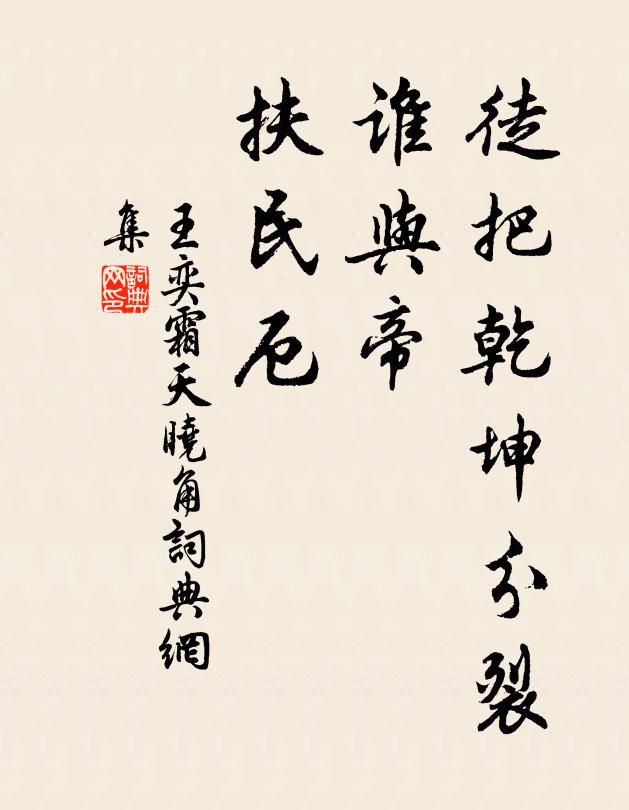 徒把乾坤分裂
誰與帝
扶民厄
王奕霜天曉角詞典網
集
詞典
网印